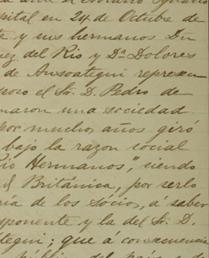 sital en 24 de Octubre de
te y sus hermanos Dn
uez del Rio y Da Dolores
de Ansoategui represen
seco el Sr. D. Pedro de
maron una sociedad
por muchos años giró
bajo la razon social
Rio Hermanos", siendo
d Británica, por serlo
ria de los sócios, á saber
sponente y la del Sr. D.
tegui; que á consecuencia